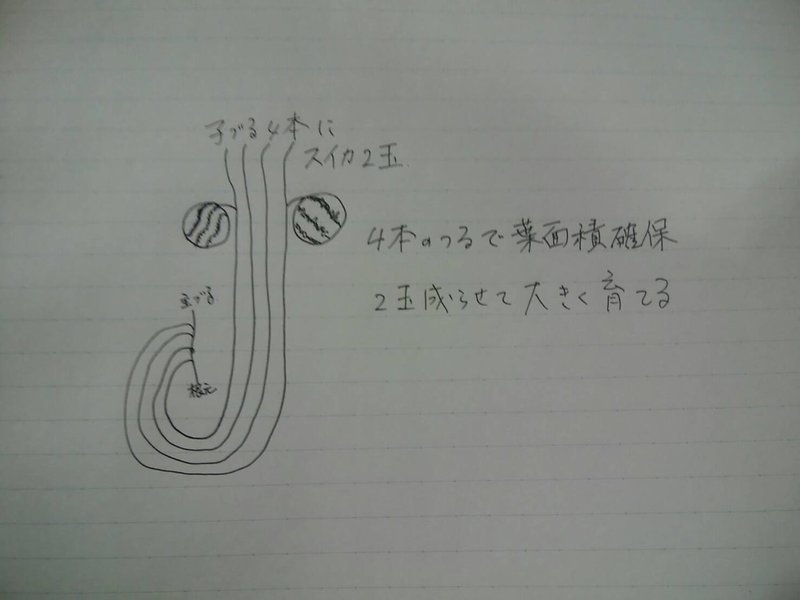 子づる4本に
スイカ2玉
4本のつるで葉面積確保
2玉成らせて大きく育てる
主づる
根元